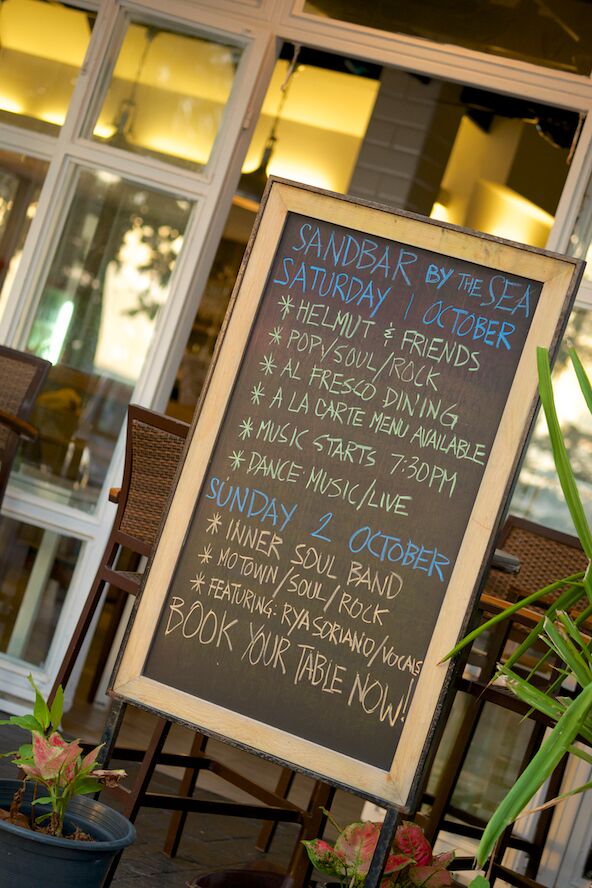 SANDBAR BY THE SEA
SATURDAY 1 OCTOBER
* HELMUT & FRIENDS
* POP/SOUL/ROCK
* AL FRESCO DINING
* A LA CARTE MENU AVAILABLE
* MUSIC STARTS 7:30PM
* DANCE MUSIC/LIVE
SUNDAY 2 OCTOBER
* INNER SOUL BAND
* MOTOWN/SOUL/ROCK
* FEATURING: RYA SORIANO/VOCALS
BOOK YOUR TABLE NOW!